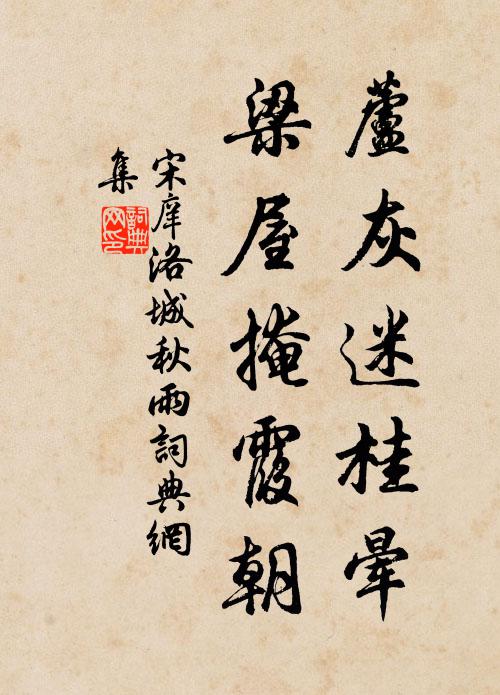 蘆灰迷桂暈
梁屋掩霞朝
宋庠洛城秋雨詞典網
集
詞典網印